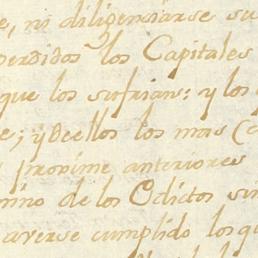 e, ni diligenciarse su
perdidos los Capitales
que los sufrian: y los
e; y Dellos los mas (a
proxime anteriores
mino de los Edictos sin
averse cumplido los qu